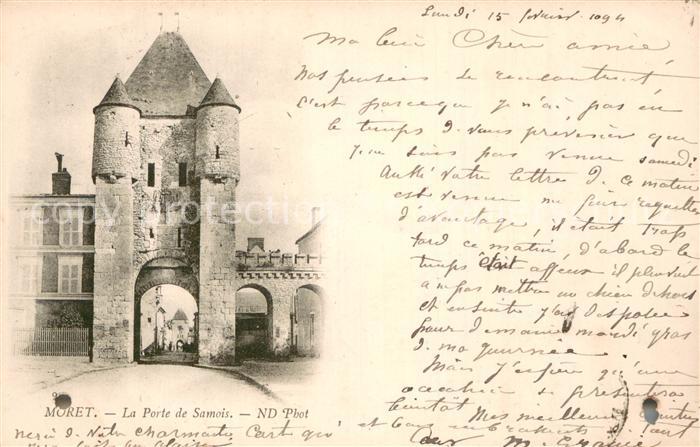 Lundi 15 février
Ma bien Chère amie
Nos pensées se rencontrent
C'est parceque je n'ai pas eu
le temps de vous prévenir que
je ne suis pas venue samedi
Aussi votre lettre de ce matin
est venue me faire regretter
d'avantage, il était trop
tard ce matin, d'abord le
temps était affreux il pleuvait
a ne pas mettre un chien dehors
et ensuite j'ai disposée
pour demain mardi gras
de ma journée
Mais j'espère qu'une
occasion se présentera
bientôt Mes meilleurs
et
MORET. - La Porte de Samois. - ND Phot
merci de votre charmante Carte qui